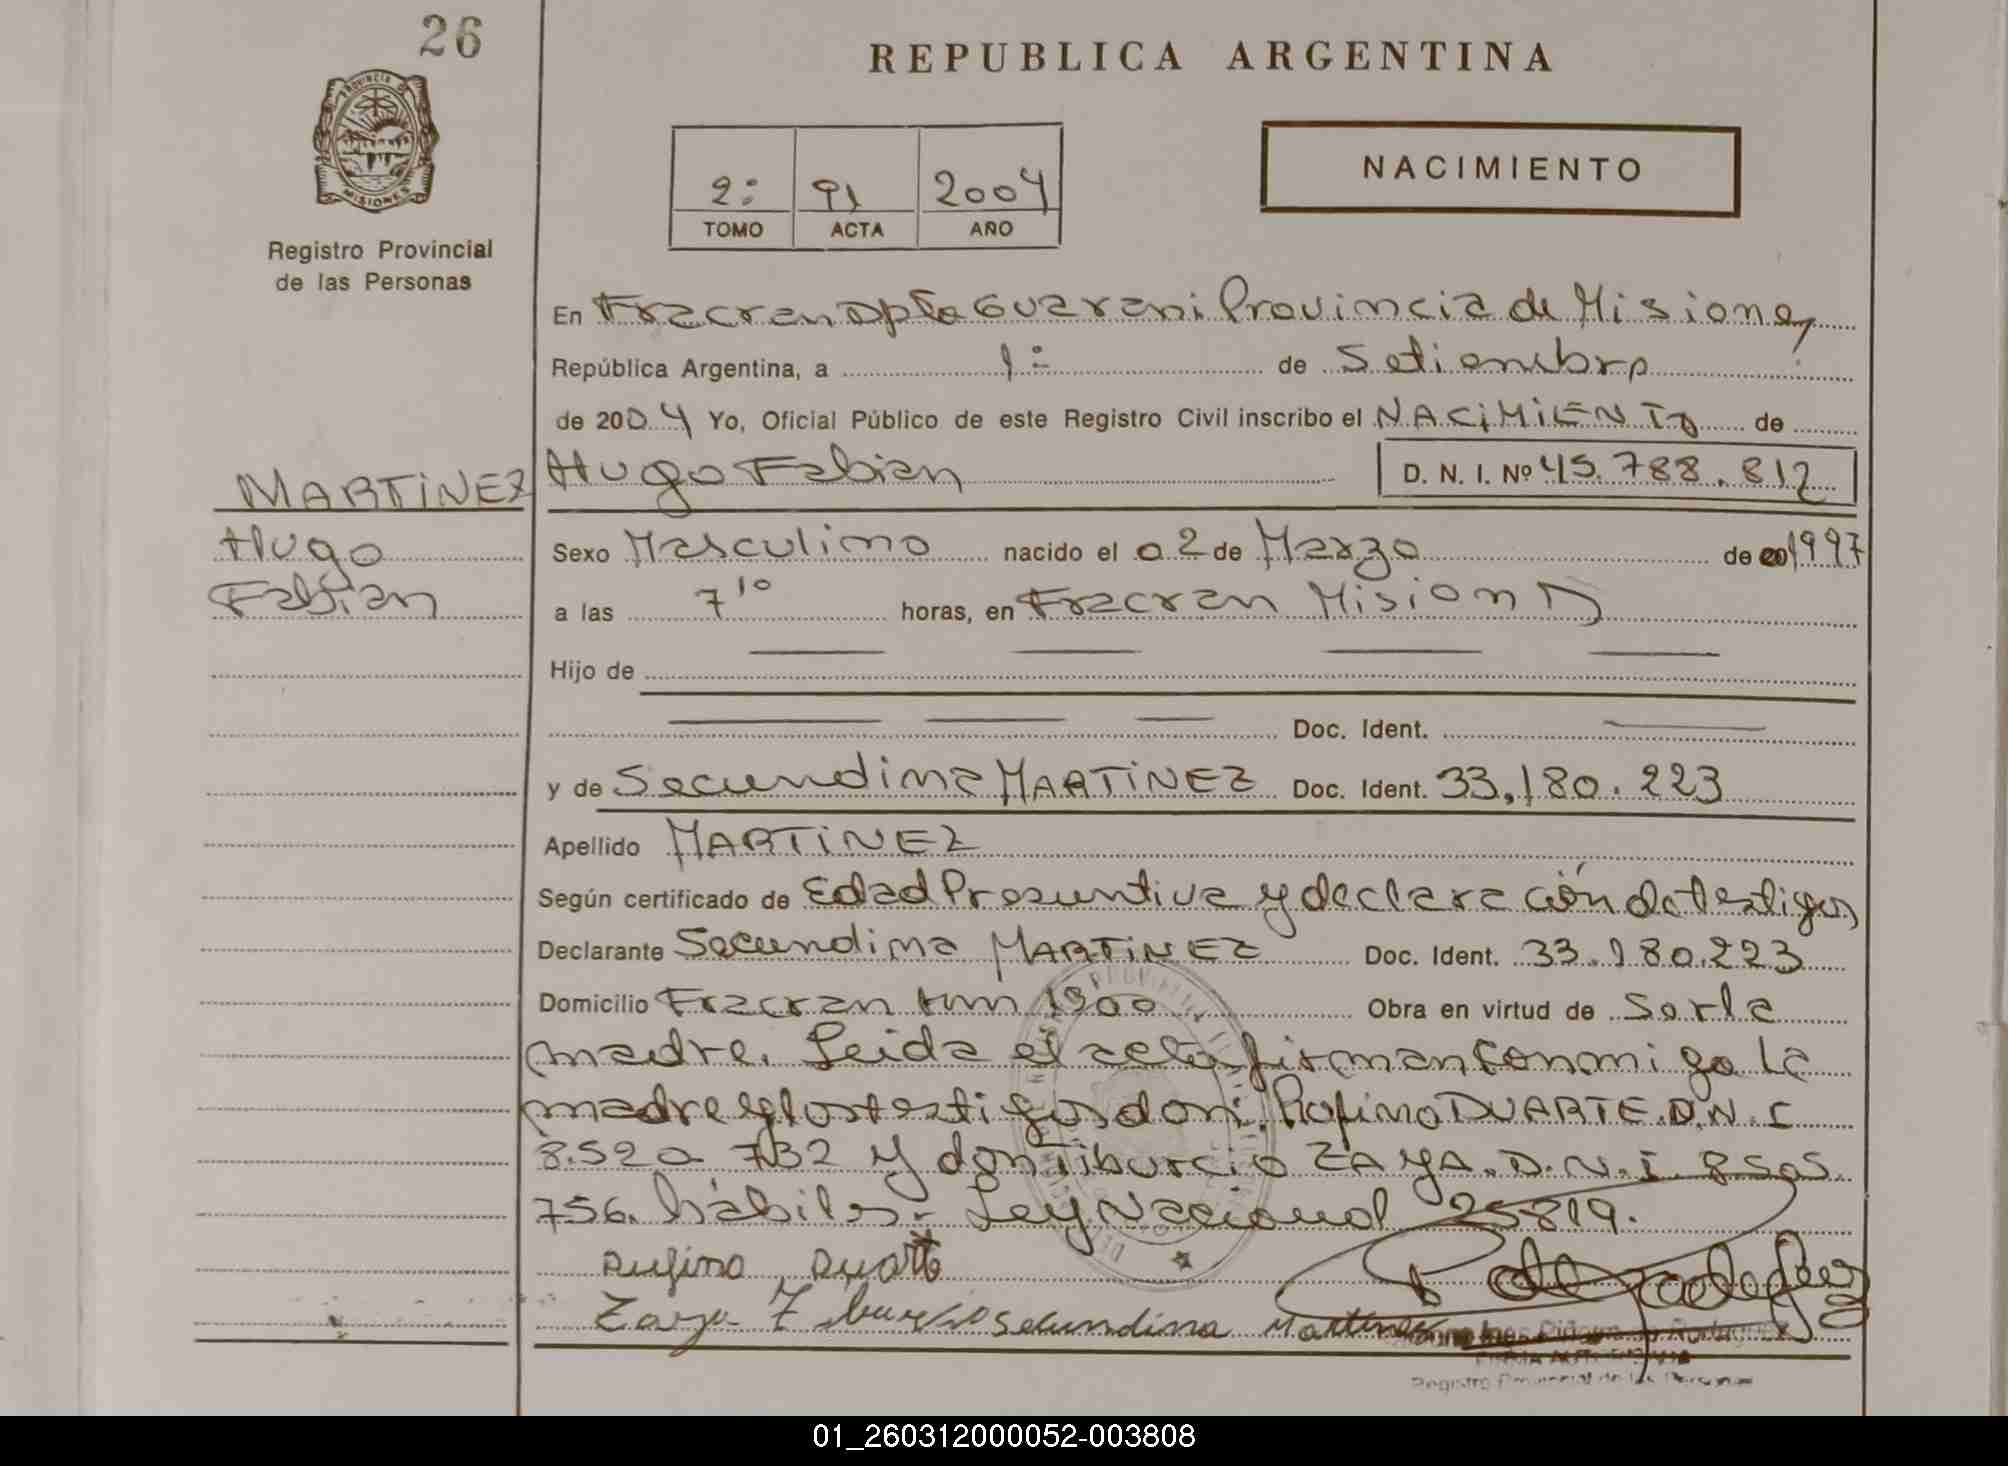 26
REPUBLICA ARGENTINA
PROVINCIA DE
MISIONES
Registro Provincial
de las Personas
2º 91 2004
TOMO ACTA AÑO
NACIMIENTO
En Fracran Dpto Guarani Provincia de Misiones
República Argentina, a 1º de Setiembre
de 2004 Yo, Oficial Público de este Registro Civil inscribo el NACiMiENTO de
MARTiNEZ Hugo Fabian D. N. I. Nº 45.788.812
Hugo
Fabian
Sexo Masculino nacido el 02 de Marzo de 1997
a las 7¹⁰ horas, en Fracran Misiones
Hijo de
Doc. Ident.
y de Secundina MARTiNEZ Doc. Ident. 33.180.223
Apellido MARTiNEZ
Según certificado de Edad Presuntiva y declaración de testigos
Declarante Secundina MARTiNEZ Doc. Ident. 33.180.223
Domicilio Fracran Km 1300 Obra en virtud de Ser la
madre. Leida el acta firman conmigo la
madre y los testigos don: Rufino DUARTE. D.N.I
8.520 732 y don Tiburcio ZAYA. D.N.I. 8505
756. hábiles.- Ley Nacional 25819.
Rufino Duarte
Zaya Tiburcio Secundina Martinez
Registro Provincial de las Personas
01_260312000052-003808